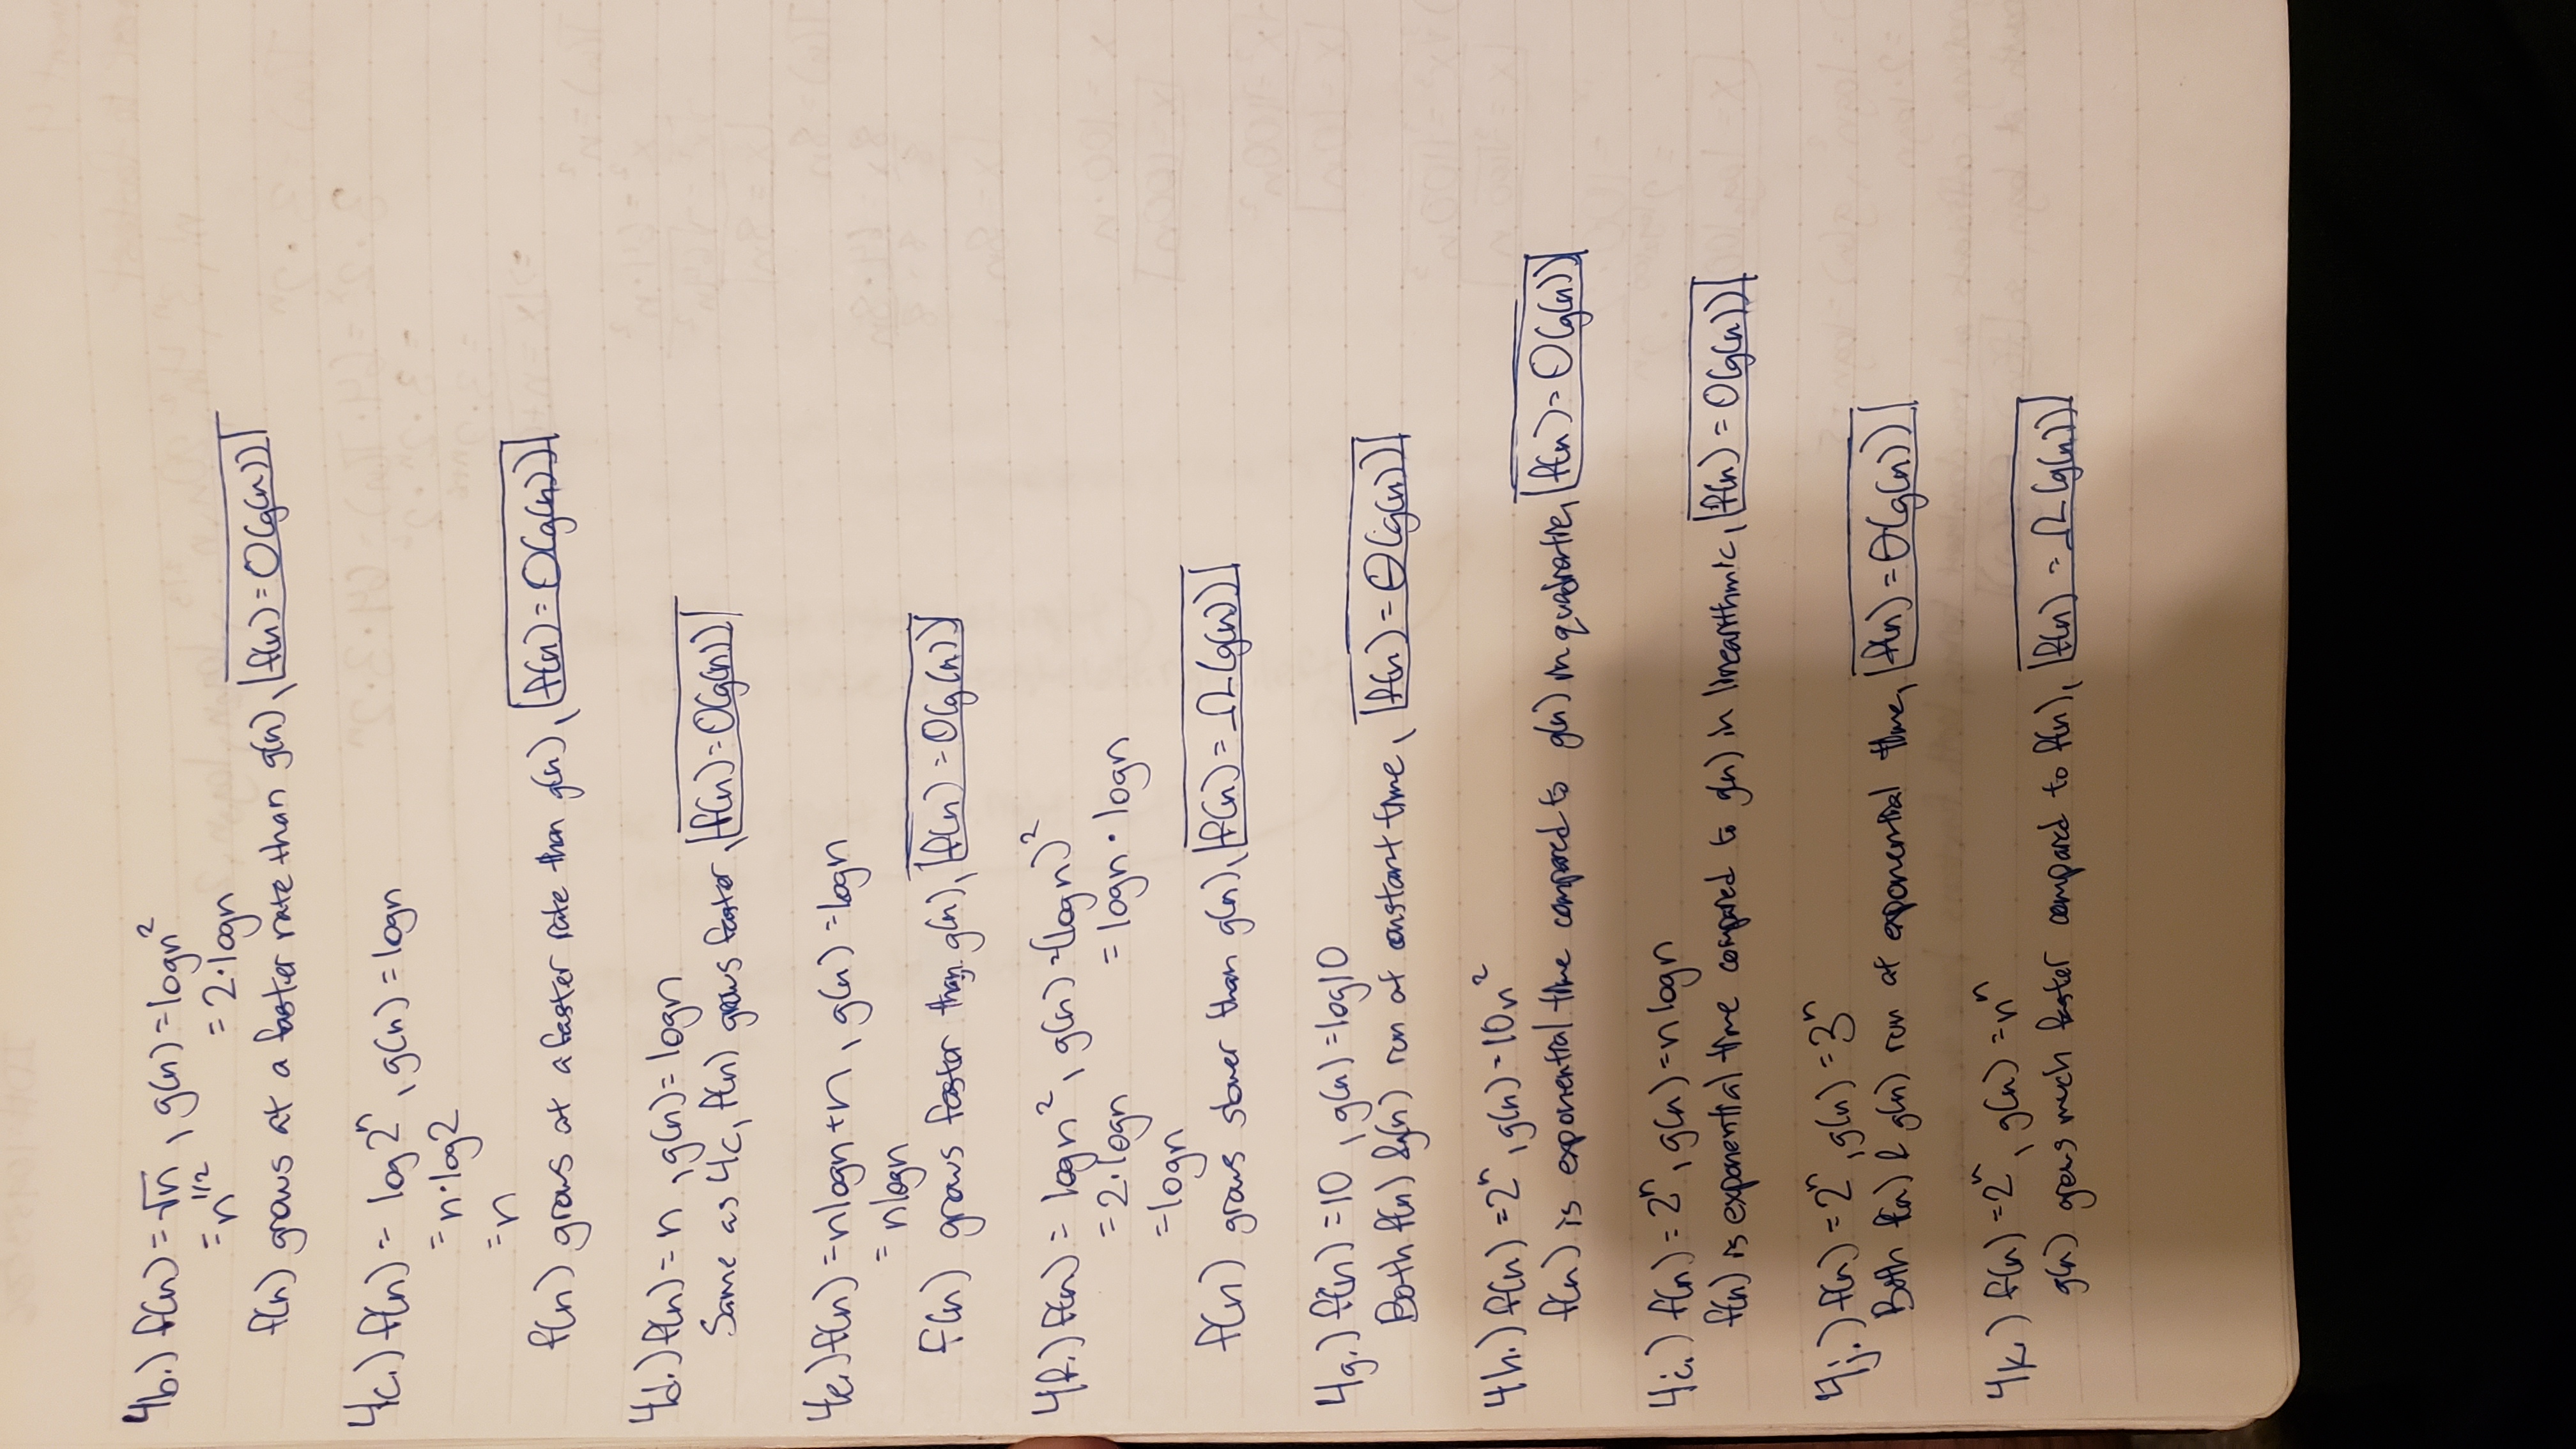 4b.) f(n) = √n, g(n) = logn²
= n^1/2 = 2·logn
f(n) grows at a faster rate than g(n), f(n) = O(g(n))
4c.) f(n) = log2ⁿ, g(n) = logn
= n·log2
= n
f(n) grows at a faster rate than g(n), f(n) = O(g(n))
4d.) f(n) = n, g(n) = logn
Same as 4c, f(n) grows faster, f(n) = O(g(n))
4e.) f(n) = nlogn + n, g(n) = logn
= nlogn
f(n) grows faster than g(n), f(n) = O(g(n))
4f.) f(n) = logn², g(n) = (logn)²
= 2·logn = logn · logn
= logn
f(n) grows slower than g(n), f(n) = Ω(g(n))
4g.) f(n) = 10, g(n) = log10
Both f(n) & g(n) run at constant time, f(n) = Θ(g(n))
4h.) f(n) = 2ⁿ, g(n) = 10n²
f(n) is exponential time compared to g(n) in quadratic, f(n) = O(g(n))
4i.) f(n) = 2ⁿ, g(n) = nlogn
f(n) is exponential time compared to g(n) in linearithmic, f(n) = O(g(n))
4j.) f(n) = 2ⁿ, g(n) = 3ⁿ
Both f(n) & g(n) run at exponential time, f(n) = Θ(g(n))
4k.) f(n) = 2ⁿ, g(n) = nⁿ
g(n) grows much faster compared to f(n), f(n) = Ω(g(n))